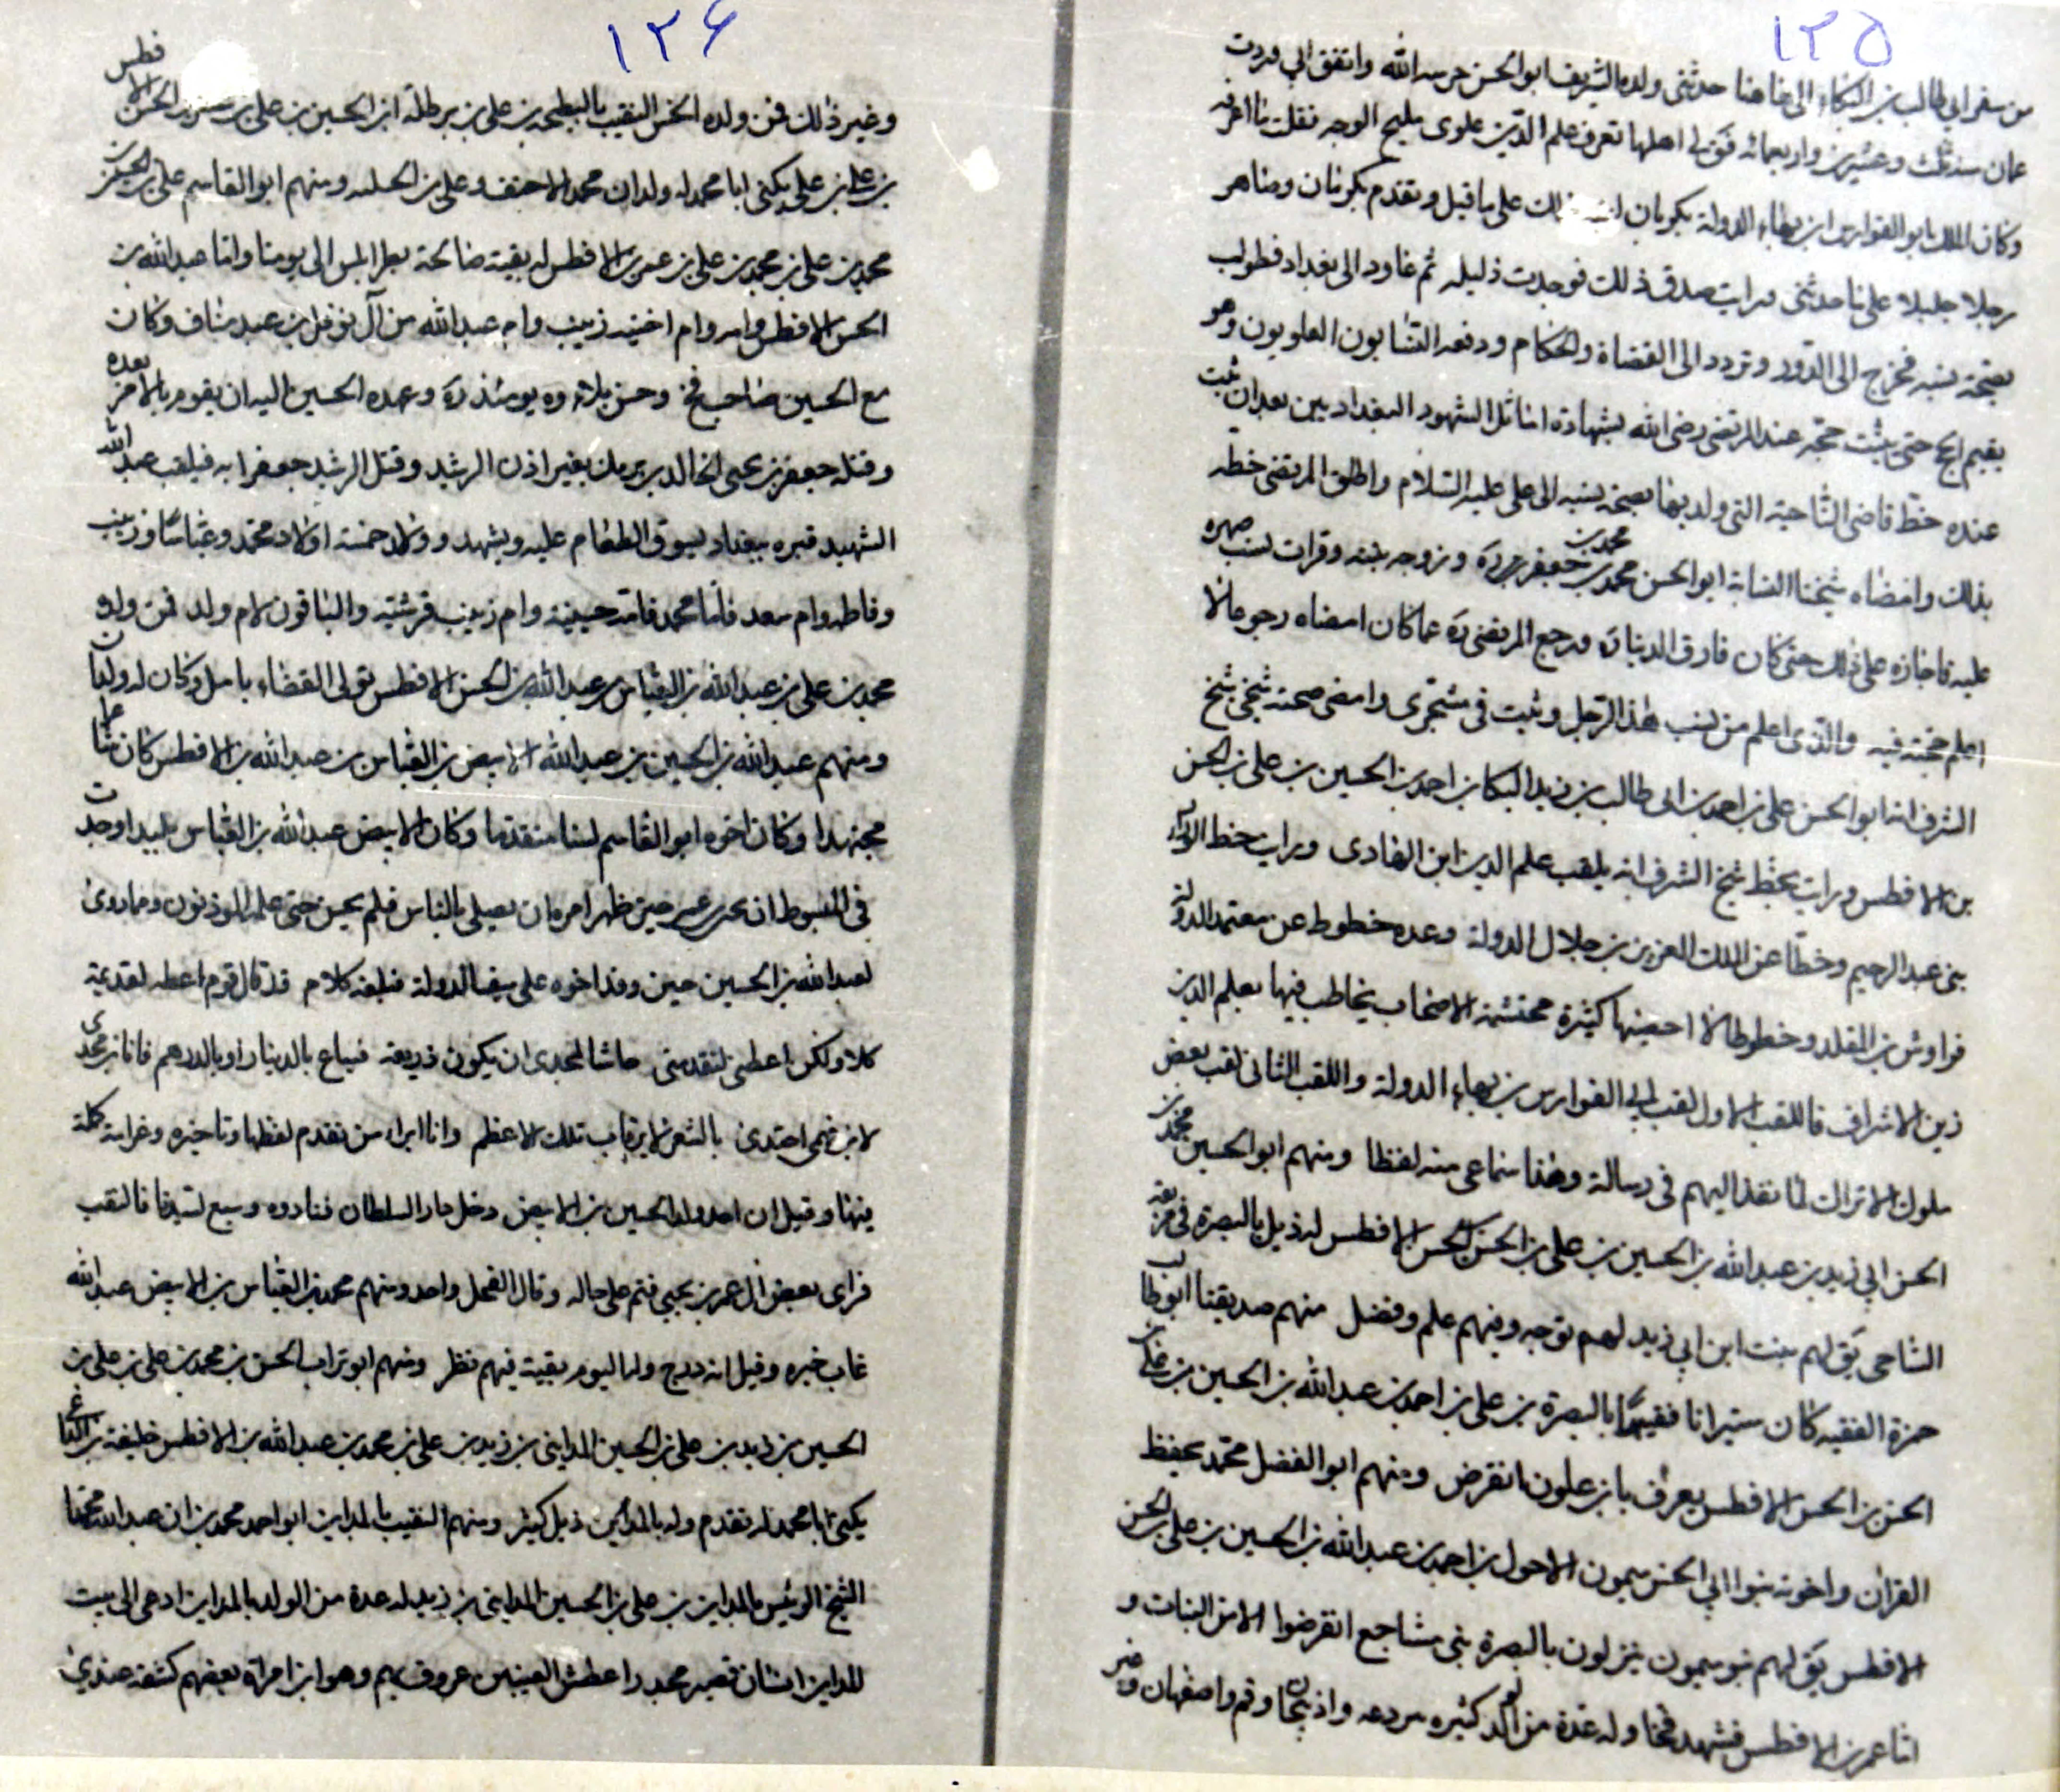 ١٢٥
من سفر ابي طالب بن البكاء الى هاهنا حدثني ولده الشريف ابو الحسن حرسه الله واتفق اني وردت
عمان سنة ثلث وعشرين واربعمائه فق لي اهلها تعرف علم الدين علوى مليح الوجه فقلت ما اعرفه
وكان الملك ابو الفوارس ابن بهاء الدولة بكرمان على ما قيل وتقدم بكرمان وظاهر
رجلا جليلا على ما حدثنى ورايت صدق ذلك فوجدت ذليله ثم عاود الى بغداد فطولب
بصحة نسبه فخرج الى الدور وتردد الى القضاة والحكام ودفعه النسابون العلويون وهو
يقيم الحج حتى يثبت حجته عند المرتضى رضى الله بشهادة اماثل الشهود البغداديين بعد ان ثبت
عنده خط قاضى الناحية التى ولد بها بصحة نسبه الى على عليه السلام واطلق المرتضى خطه
بذلك وامضاه شيخنا النسابة ابو الحسن محمد بن محمد بن جعفر ره وزوجه بنته وقرات نسب صهره
عليه فاجازه على ذلك حتى كان فارق الدنيا ره ورجع المرتضى ره عما كان امضاه رجوعا لا
اعلم حجته فيه والذى اعلم من نسب هذا الرجل وثبت في مشجرى وامضى صحته شيخى شيخ
الشرف انه ابو الحسن على بن احمد بن ابى طالب بن زيد البكا بن احمد بن الحسين بن على بن الحسن
بن الافطس ورايت بخط شيخ الشرف انه يلقب علم الدين ابن الهادى ورايت خط الوزراء
بنى عبد الرحيم وخطا عن الملك العزيز بن جلال الدولة وعده خطوط عن معتمد الدولة
قراوش بن المقلد وخطوطا لا احصيها كثرة محتشمة الاصحاب يخاطب فيها بعلم الدين
زين الاشراف فاللقب الاول لقب ابى الفوارس بن بهاء الدولة واللقب الثانى لقب بعض
ملوك الاتراك لما نفذ اليهم فى رسالة وهذا سماعى منه لفظا ومنهم ابو الحسين محمد بن
الحسن ابي زيد بن عبد الله بن الحسين بن على بن الحسن بن الحسن الافطس له ذيل بالبصرة فى
الشاحى يق لهم بنت ابن ابي زيد لهم توجه وفيهم علم وفضل منهم صديقنا ابو طالب
حمزة الفقيه كان ستيرا فقيها بالبصرة بن على بن احمد بن عبد الله بن الحسين بن على بن
الحسن بن الحسن الافطس يعرف بابن علون انقرض ومنهم ابو الفضل محمد بحفظ
القران واخوته بنوا ابي الحسن ميمون الاحول بن احمد بن عبد الله بن الحسين بن على بن الحسن
الافطس يق لهم بنو ميمون ينزلون بالبصرة بنى مشاجع انقرضوا الا من البنات و
اما عمر بن الافطس فشهد فخا وله عدة من الولد كثيره بردعه واذربيجان وقم واصفهان وغير
١٢۶
وغير ذلك فمن ولده الحسن النقيب بالبطيحه بن على بن برطلة ابن الحسين بن على بن عمر بن الحسن الافطس
بن على بن على يكنى ابا محمد له ولدان محمد الاحنف وعلى بن ومنهم ابو القاسم على بن الحسن بن
محمد بن على بن محمد بن على بن عمر بن الافطس له بقية صالحة بطرابلس الى يومنا واما عبد الله بن
الحسن الافطس وامه وام اخيته زينب وام عبد الله من آل نوفل بن عبد مناف وكان
مع الحسين صاحب فخ وحسن بلاؤه يومئذ ره وعهده الحسين اليه ان يقوم بالامر بعده
وقتله جعفر بن يحيى الخالد بن برمك بغير اذن الرشيد وقتل الرشيد جعفرا به فيلقب عبد الله
الشهيد قبره ببغداد بسوق الطعام عليه ويشهد وولد خمسة اولاد محمد وعباسا وزينب
وفاطمه وام سعد فاما محمد فامه حسينية وام زينب قرشيه والباقون لام ولد فمن ولد
محمد بن على بن عبد الله بن العباس بن عبد الله بن الحسن الافطس تولى القضاء بامل وكان له ولدان
ومنهم عبد الله بن الحسين بن عبد الله الابيض بن العباس بن عبد الله بن الافطس كان شاعرا
مجتهدا وكان اخوه ابو القاسم لسنا متقدما وكان الابيض عبد الله بن العباس بليدا وجدت
في المبسوط ان يحيى بن عمر حين ظهر امره ان يصلى بالناس فلم يحسن حتى علمه الموذنون ومما روى
لعبد الله بن الحسين حين وفد اخوه على سيف الدولة فبلغه كلام قد قال قوم اعطه لقديمة
كلا ولكن اعطنى لتقدمى حاشا لمجدى ان يكون ذريعة فيباع بالدينار او بالدرهم فانا ابن مجدى
لابن فهمى اجتدى بالشعر لا برقاب تلك الاعظم وانا ابراء من تقدم لفظها وتاخيره وغرابة كلمة
فيها وقيل ان احد ولد الحسين بن الابيض دخل دار السلطان فنادوه وسبع لسيدنا فالنقب
فراى بعض ال عمر بن يحيى فتم على حاله وقال الفحل واحد ومنهم محمد بن العباس بن الابيض عبد الله
غاب خبره وقيل انه درج ولد اليوم بقية فيهم نظر ومنهم ابو تراب الحسن بن محمد بن على بن على بن
الحسين بن زيد بن على بن الحسين المداينى بن زيد بن على بن محمد بن عبد الله بن الافطس خليفة بن الداعى
يكنى ابا محمد له تقدم وله بالمداين ذيل كثير ومنهم النقيب بالمداين ابو احمد محمد بن ان عبد الله محمد
الشيخ الرئيس بالمداين بن على بن الحسين المداينى بن زيد له عدة من الولد بالمداين ادعى الى بيت
المداين انسان قصير مجدر اعطش العينين عروف بهم وهو ابن امراة بعضهم كشفه عندى